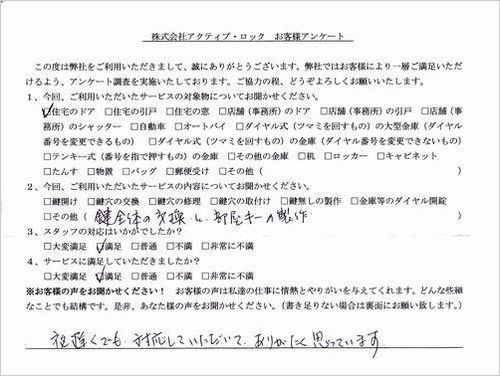 株式会社アクティブ・ロック　お客様アンケート
この度は弊社をご利用いただきまして、誠にありがとうございます。弊社ではお客様により一層ご満足いただ
けるよう、アンケート調査を実施いたしております。ご協力の程、どうぞよろしくお願いいたします。
1、今回、ご利用いただいたサービスの対象物についてお聞かせください。
☑住宅のドア　□住宅の引戸　□住宅の窓　□店舗（事務所）のドア　□店舗（事務所）の引戸　□店舗（事
務所）のシャッター　□自動車　□オートバイ　□ダイヤル式（ツマミを回すもの）の大型金庫（ダイヤル
番号を変更できるもの）　□ダイヤル式（ツマミを回すもの）の金庫（ダイヤル番号を変更できないもの）
□テンキー式（番号を指で押すもの）の金庫　□その他の金庫　□机　□ロッカー　□キャビネット
□たんす　□物置　□バッグ　□郵便受け　□その他（　　　　　　　　）
2、今回、ご利用いただいたサービスの内容についてお聞かせください。
□鍵開け　□鍵穴の交換　□鍵穴の修理　□鍵穴の取付け　□鍵無しの製作　□金庫等のダイヤル開錠
□その他（ 鍵全体の交換と、部屋キーの製作　　　）
3、スタッフの対応はいかがでしたか？
□大変満足　☑満足　□普通　□不満　□非常に不満
4、サービスに満足していただきましたか？
□大変満足　☑満足　□普通　□不満　□非常に不満
※お客様の声をお聞かせください！　お客様の声は私達の仕事に情熱とやりがいを与えてくれます。どんな些細
なことでも結構です。是非、あなた様の声をお聞かせください。（書き足りない場合は裏面にお願い致します。）
夜遅くでも、対応していただいて、ありがたく思っています